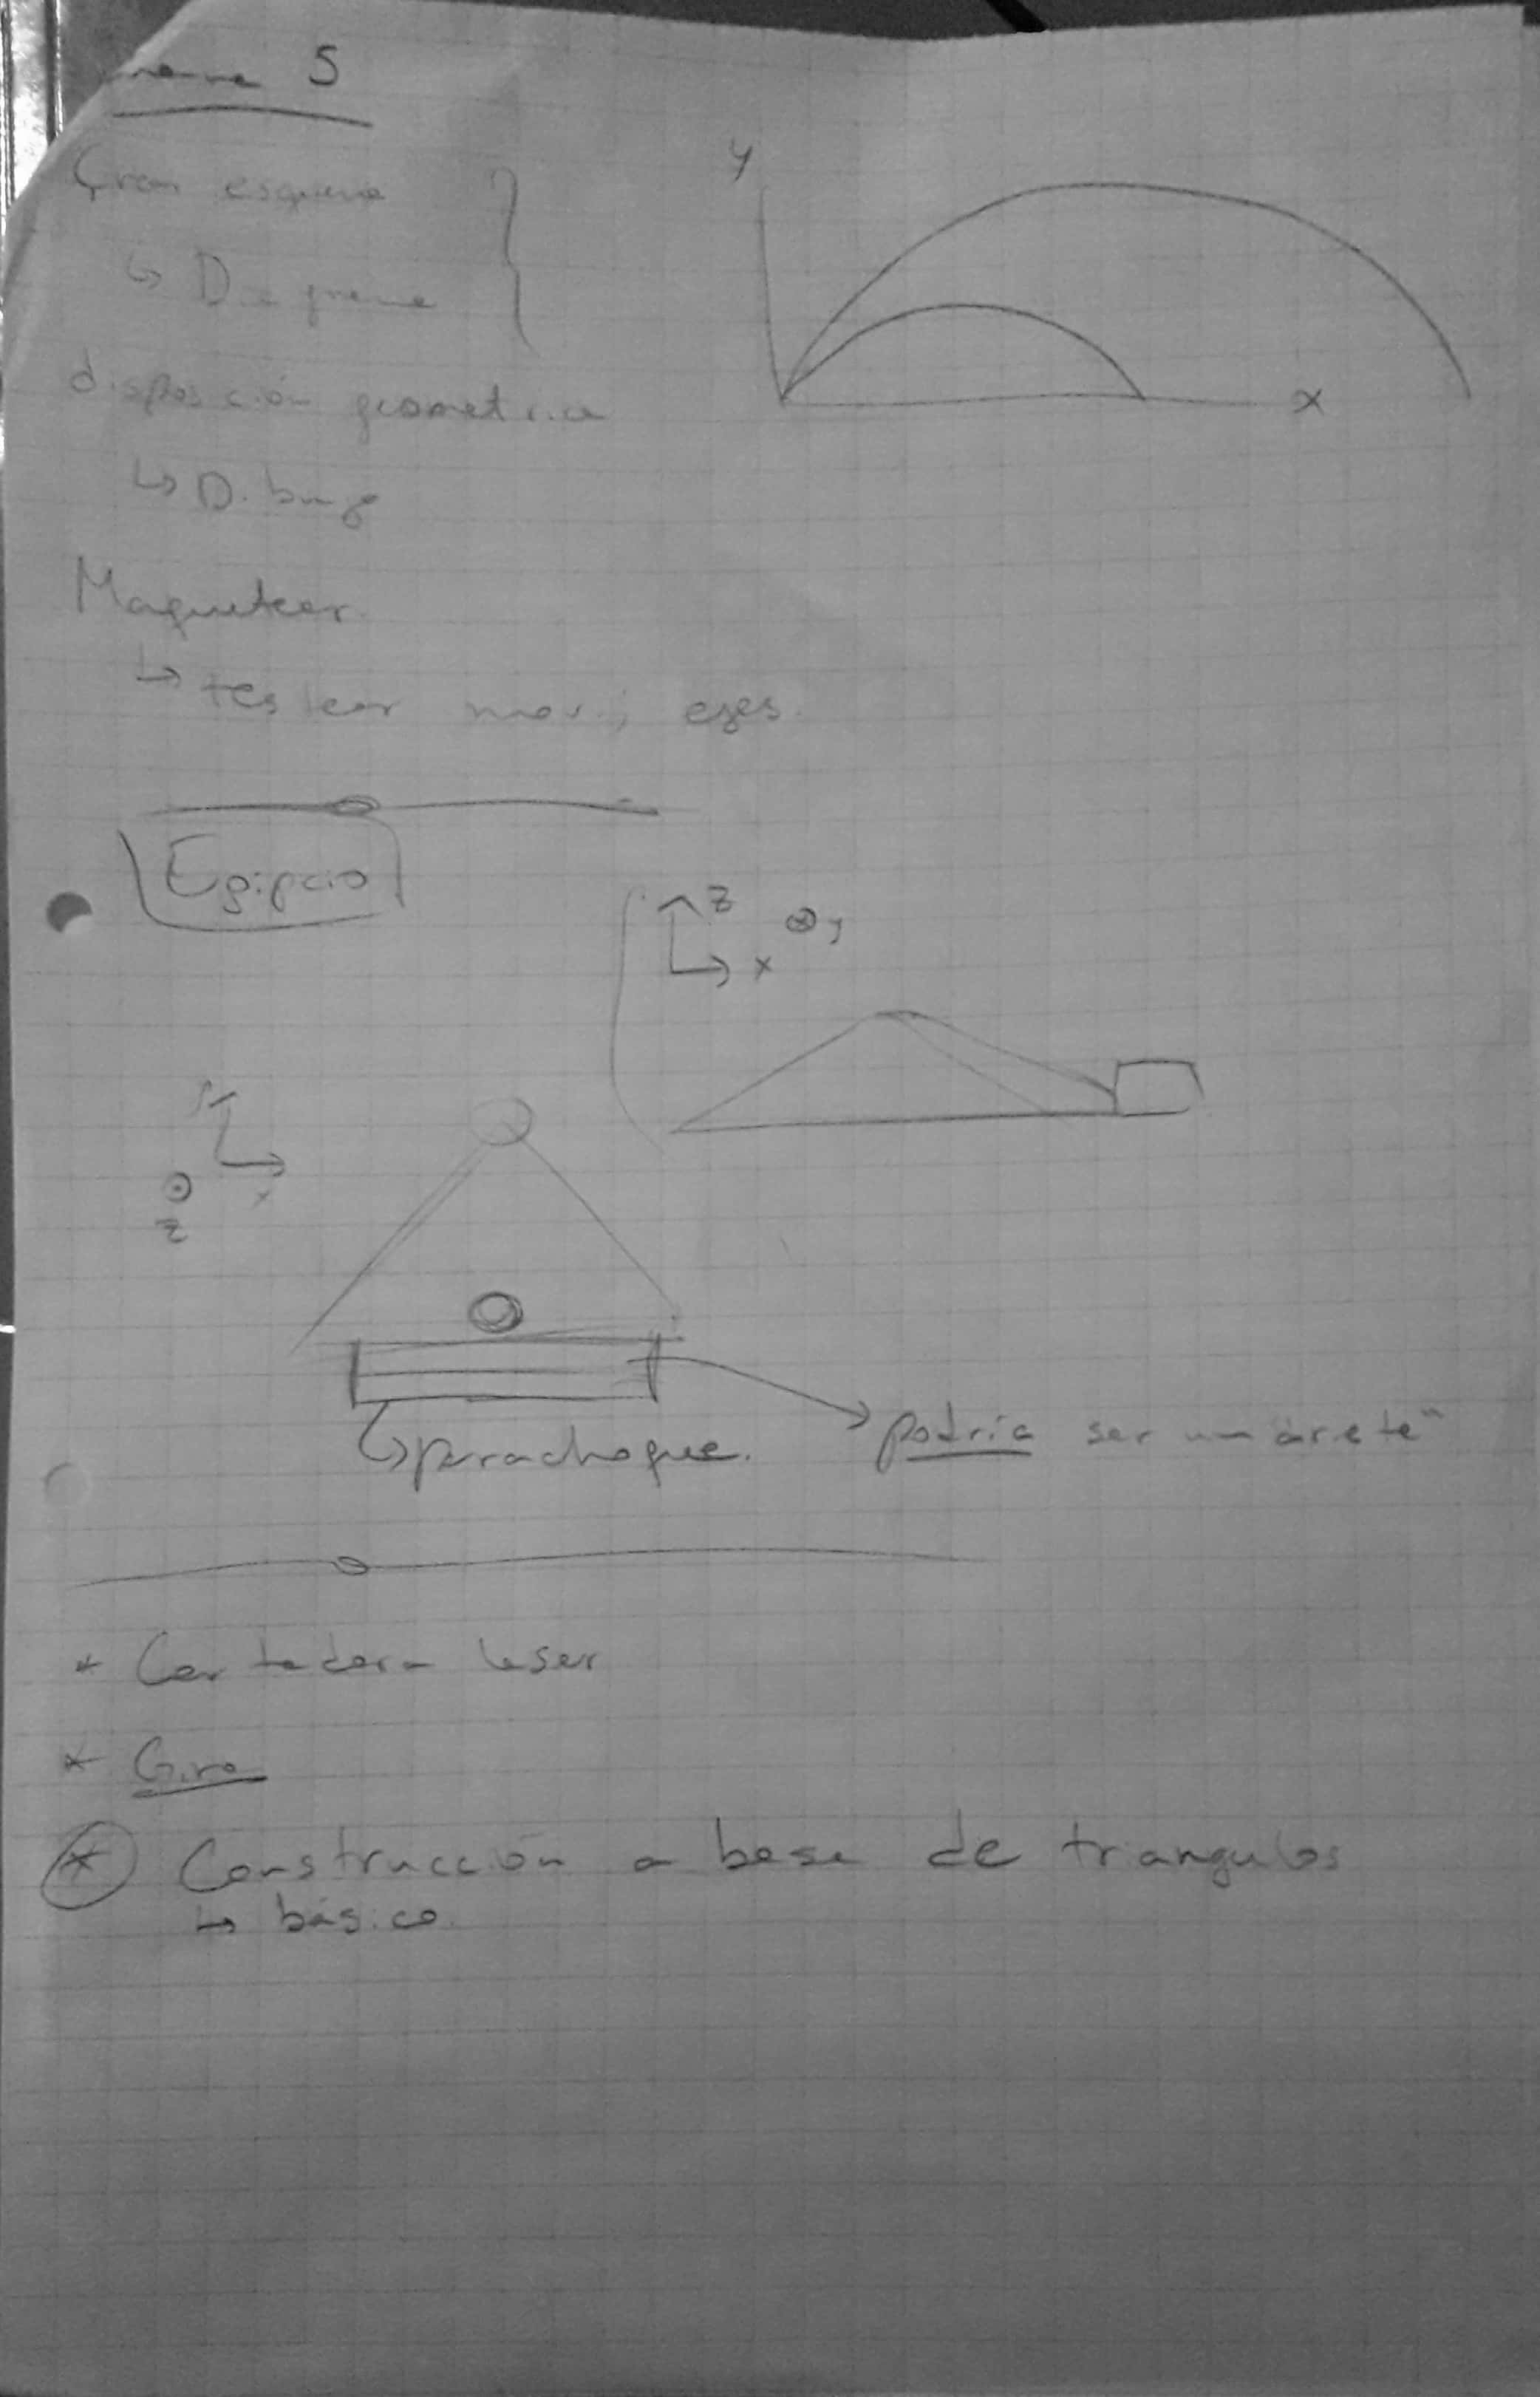 5
Gran esquema
↳ Diagrama
disposición geometrica
↳ Dibujo
Maquetear
↳ testear mov., ejes.
y
x
Egipcio
z
y
x
x
z
↳ parachoque.
→ podría ser un "ariete"
* Cortadora laser
* Giro
* Construcción a base de triangulos
↳ básico